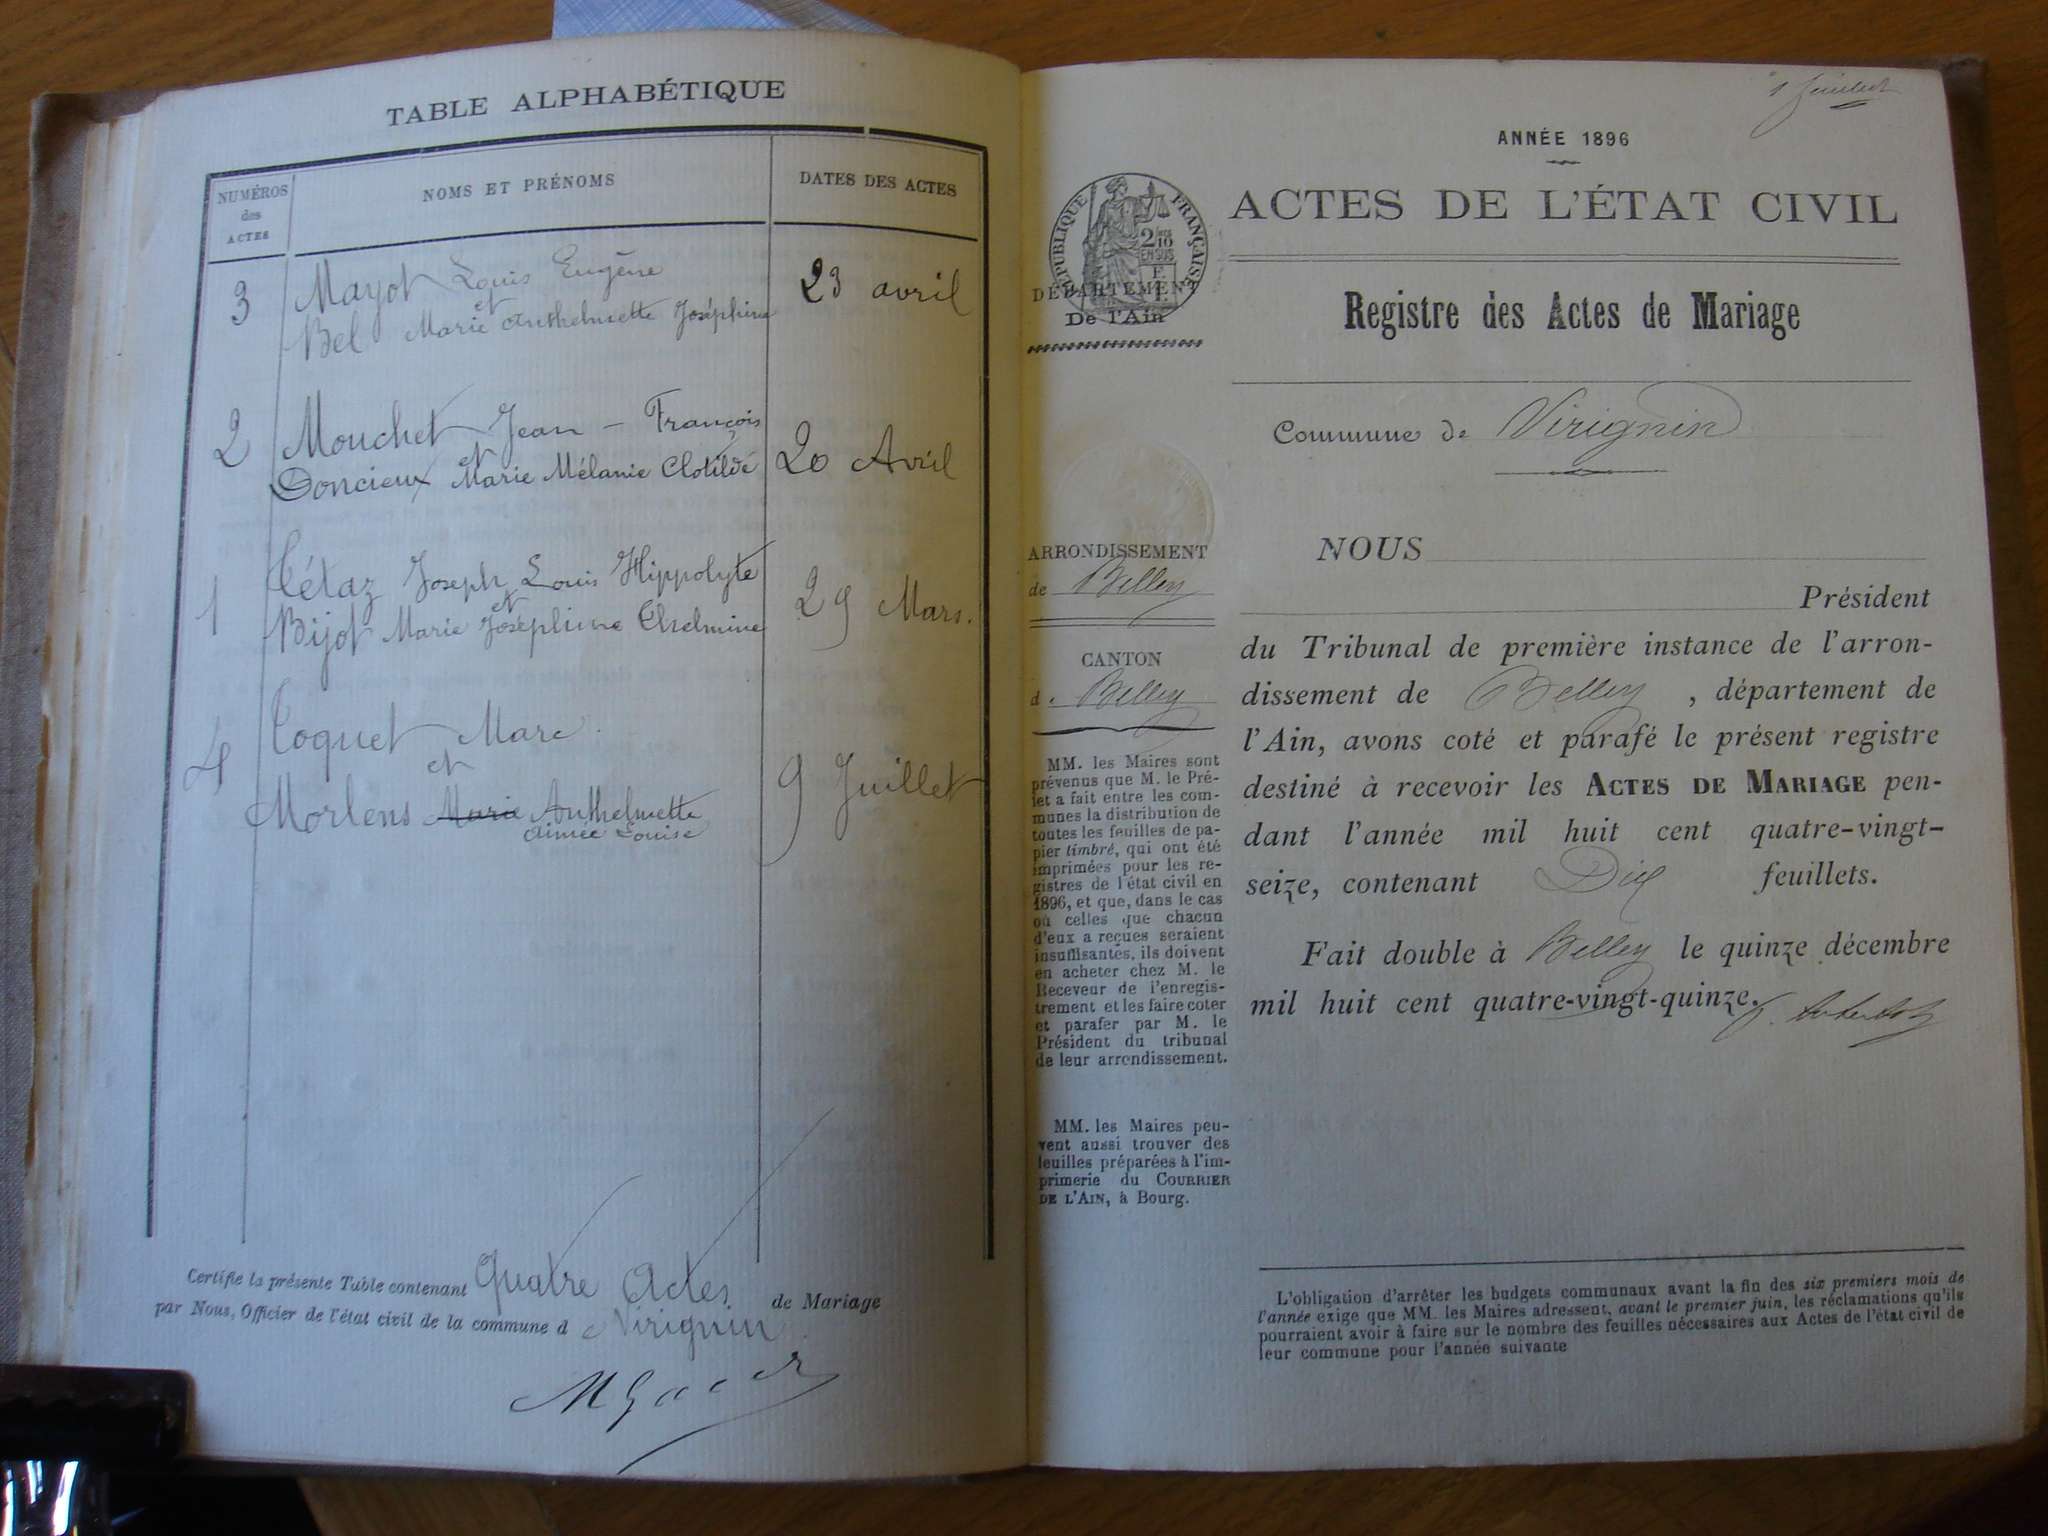 TABLE ALPHABÉTIQUE
NUMÉROS
des
ACTES
NOMS ET PRÉNOMS
DATES DES ACTES
3 Mayot Louis Eugène 23 avril
et
Bel Marie Anthelmette Joséphine
2 Mouchet Jean-François 20 Avril
et
Doncieux Marie Mélanie Clotilde
1 Tétaz Joseph Louis Hippolyte 29 Mars.
et
Bijot Marie Joséphine Thelmine
4 Toquet Marc. 9 Juillet
et
Morlens Marie Anthelmette
Aimée Louise
Certifie la présente Table contenant Quatre Actes de Mariage
par Nous, Officier de l'état civil de la commune d Virignin.
1 feuillet
ANNÉE 1896
RÉPUBLIQUE FRANÇAISE
2/10
EN SUS
ACTES DE L'ÉTAT CIVIL
DÉPARTEMENT
De l'Ain
Registre des Actes de Mariage
Commune de Virignin
ARRONDISSEMENT
de Belley
CANTON
d. Belley
MM. les Maires sont
prévenus que M. le Pré-
fet a fait entre les com-
munes la distribution de
toutes les feuilles de pa-
pier timbré, qui ont été
imprimées pour les re-
gistres de l'état civil en
1896, et que, dans le cas
où celles que chacun
d'eux a reçues seraient
insuffisantes, ils doivent
en acheter chez M. le
Receveur de l'enregis-
trement et les faire coter
et parafer par M. le
Président du tribunal
de leur arrondissement.
MM. les Maires peu-
vent aussi trouver des
feuilles préparées à l'im-
primerie du COURRIER
DE L'AIN, à Bourg.
NOUS
Président
du Tribunal de première instance de l'arron-
dissement de Belley, département de
l'Ain, avons coté et parafé le présent registre
destiné à recevoir les ACTES DE MARIAGE pen-
dant l'année mil huit cent quatre-vingt-
seize, contenant Dix feuillets.
Fait double à Belley le quinze décembre
mil huit cent quatre-vingt-quinze.
L'obligation d'arrêter les budgets communaux avant la fin des six premiers mois de
l'année exige que MM. les Maires adressent, avant le premier juin, les réclamations qu'ils
pourraient avoir à faire sur le nombre des feuilles nécessaires aux Actes de l'état civil de
leur commune pour l'année suivante